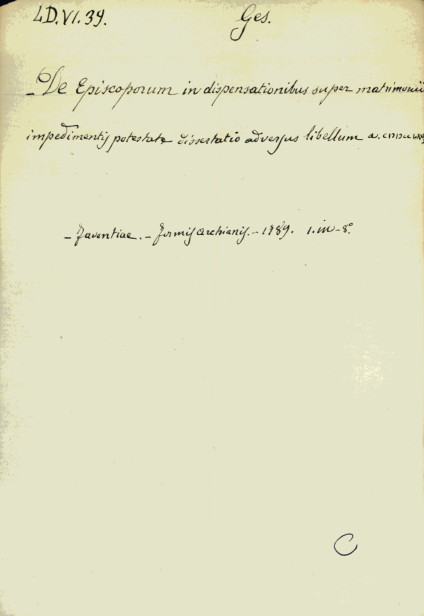 4D.VI.39. Ges.
- De Episcoporum in dispensationibus super matrimonii
impedimentis potestate dissertatio adversus libellum a.
- Faventiae. - formis Archianis. - 1789. 1. in - 8°.
C